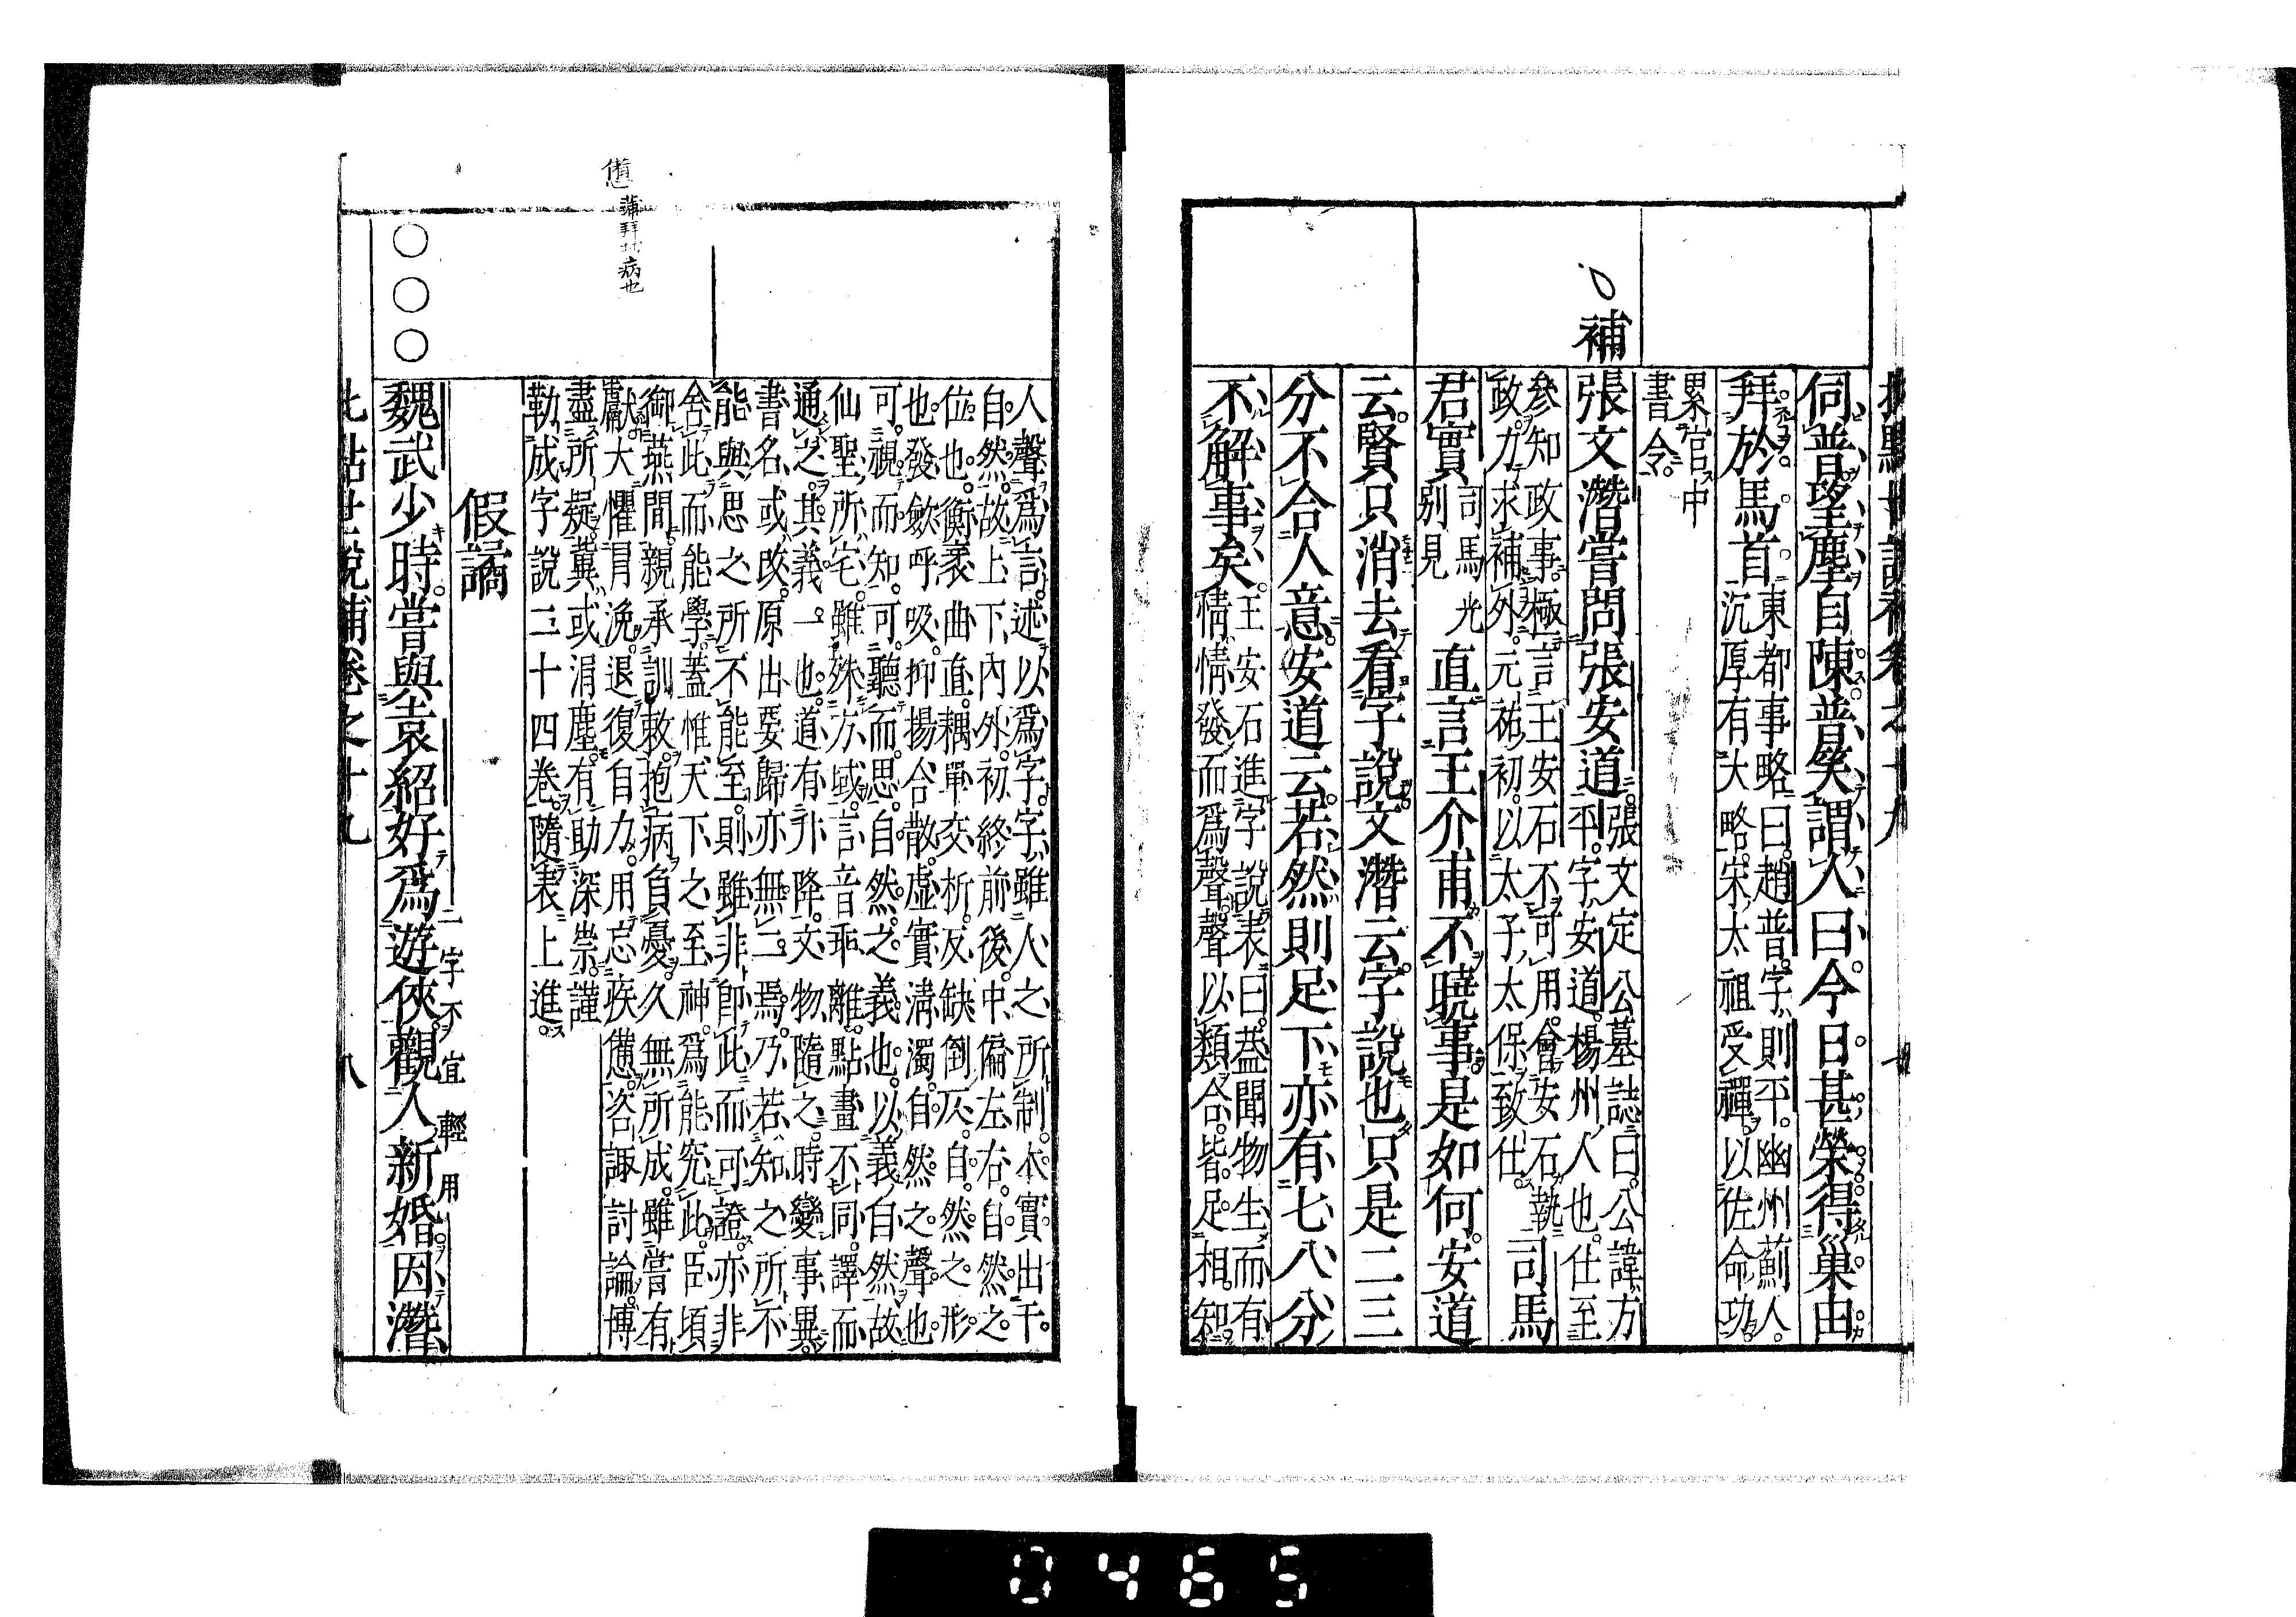 批點世説補卷之十九
伺普望塵自陳普笑謂人曰今日甚榮得巢由
拜於馬首
東都事略曰趙普字則平幽州薊人
沉厚有大略宋太祖受禪以佐命功
累官中
書令
補
張文潛嘗問張安道
張文定公墓誌曰公諱方
平字安道楊州人也仕至
參知政事極言王安石不可用會安石執
政力求補外元祐初以太子太保致仕
司馬
君實
司馬光
別見
直言王介甫不曉事是如何安道
云賢只消去看字說文潛云字說也只是二三
分不合人意安道云若然則足下亦有七八分
不解事矣
王安石進字說表曰蓋聞物生而有
情情發而爲聲聲以類合皆足相知
人聲爲言述以爲字字雖人之所制本實出于
自然故上下內外初終前後中偏左右自然之
位也衡衺曲直耦單交析反缺倒仄自然之形
也發斂呼吸抑揚合散虛實清濁自然之聲也
可視而知可聽而思自然之義也以義自然故
仙聖所宅雖殊方域言音乖離點畫不同譯而
通之其義一也道有升降文物隨之時變事異
書名或改原出要歸亦無二焉乃若知之所不
能與思之所不能至則雖非卽此而可證亦非
舍此而能學蓋惟天下之至神爲能究此臣頃
御燕間親承訓敕抱病負憂久無所成雖嘗有
獻大懼冐浼退復自力用忘疾憊咨諏討論博
盡所疑冀或涓塵有助深崇謹
勒成字說二十四卷隨表上進
憊
蒲拜切病也
假譎
二字不宜輕用
○○○
魏武少時嘗與袁紹好爲遊俠觀人新婚因潛
批點世説補卷之十九
八
0465